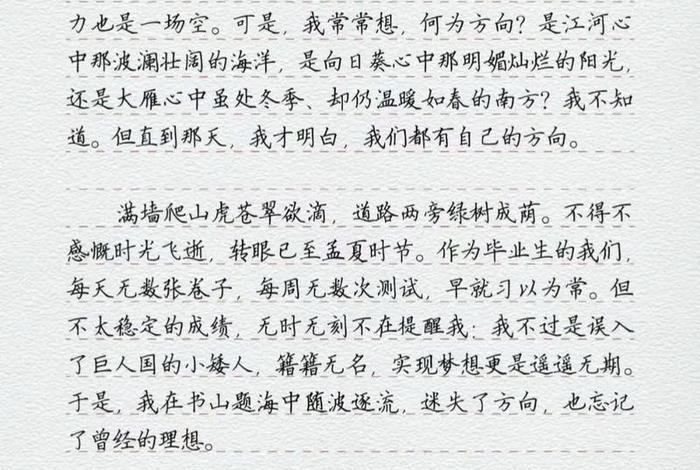 力也是一场空。可是，我常常想，何为方向？是江河心
中那波澜壮阔的海洋，是向日葵心中那明媚灿烂的阳光，
还是大雁心中虽处冬季、却仍温暖如春的南方？我不知
道。但直到那天，我才明白，我们都有自己的方向。
满墙爬山虎苍翠欲滴，道路两旁绿树成荫。不得不
感慨时光飞逝，转眼已至孟夏时节。作为毕业生的我们，
每天无数张卷子，每周无数次测试，早就习以为常。但
不太稳定的成绩，无时无刻不在提醒我：我不过是误入
了巨人国的小矮人，籍籍无名，实现梦想更是遥遥无期。
于是，我在书山题海中随波逐流，迷失了方向，也忘记
了曾经的理想。